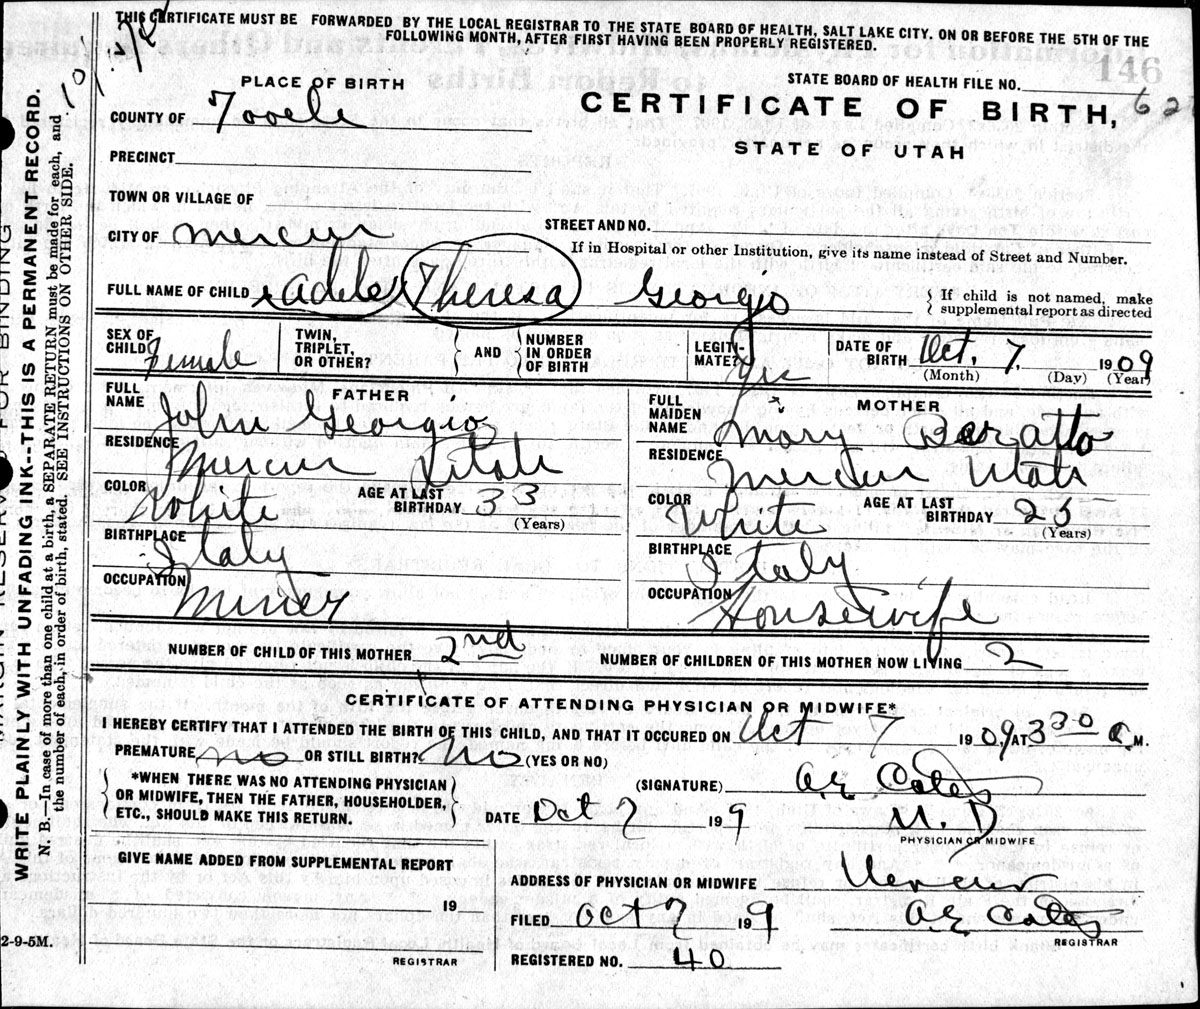 THIS CERTIFICATE MUST BE FORWARDED BY THE LOCAL REGISTRAR TO THE STATE BOARD OF HEALTH, SALT LAKE CITY, ON OR BEFORE THE 5TH OF THE
FOLLOWING MONTH, AFTER FIRST HAVING BEEN PROPERLY REGISTERED.
146
PLACE OF BIRTH
STATE BOARD OF HEALTH FILE NO.
COUNTY OF Tooele
CERTIFICATE OF BIRTH, 62
STATE OF UTAH
PRECINCT
TOWN OR VILLAGE OF
CITY OF Mercur STREET AND NO.
If in Hospital or other Institution, give its name instead of Street and Number.
FULL NAME OF CHILD Adele Theresa Georgio } If child is not named, make
supplemental report as directed
SEX OF CHILD Female TWIN, TRIPLET, OR OTHER? } AND { NUMBER IN ORDER OF BIRTH LEGITIMATE? Yes DATE OF BIRTH Oct. 7, 1909
(Month) (Day) (Year)
FATHER
FULL NAME John Georgio
RESIDENCE Mercur Utah
COLOR White AGE AT LAST BIRTHDAY 33
(Years)
BIRTHPLACE Italy
OCCUPATION Miner
MOTHER
FULL MAIDEN NAME Mary
RESIDENCE Mercur Utah
COLOR White AGE AT LAST BIRTHDAY
(Years)
BIRTHPLACE Italy
OCCUPATION Housewife
NUMBER OF CHILD OF THIS MOTHER 2nd NUMBER OF CHILDREN OF THIS MOTHER NOW LIVING 2
CERTIFICATE OF ATTENDING PHYSICIAN OR MIDWIFE*
I HEREBY CERTIFY THAT I ATTENDED THE BIRTH OF THIS CHILD, AND THAT IT OCCURED ON Oct 7 1909, AT 3 30 a. M.
PREMATURE no OR STILL BIRTH? No (YES OR NO)
{ *WHEN THERE WAS NO ATTENDING PHYSICIAN
OR MIDWIFE, THEN THE FATHER, HOUSEHOLDER,
ETC., SHOULD MAKE THIS RETURN. }
(SIGNATURE) A.E. Cates
DATE Oct 7 199 M. D
PHYSICIAN OR MIDWIFE
GIVE NAME ADDED FROM SUPPLEMENTAL REPORT
19
REGISTRAR
ADDRESS OF PHYSICIAN OR MIDWIFE Mercur
FILED Oct 7 199 A.E. Cates
REGISTRAR
REGISTERED NO. 40
2-9-5M.
MARGIN RESERVED FOR BINDING
WRITE PLAINLY WITH UNFADING INK--THIS IS A PERMANENT RECORD.
N. B.—In case of more than one child at a birth, a SEPARATE RETURN must be made for each, and
the number of each, in order of birth, stated. SEE INSTRUCTIONS ON OTHER SIDE.